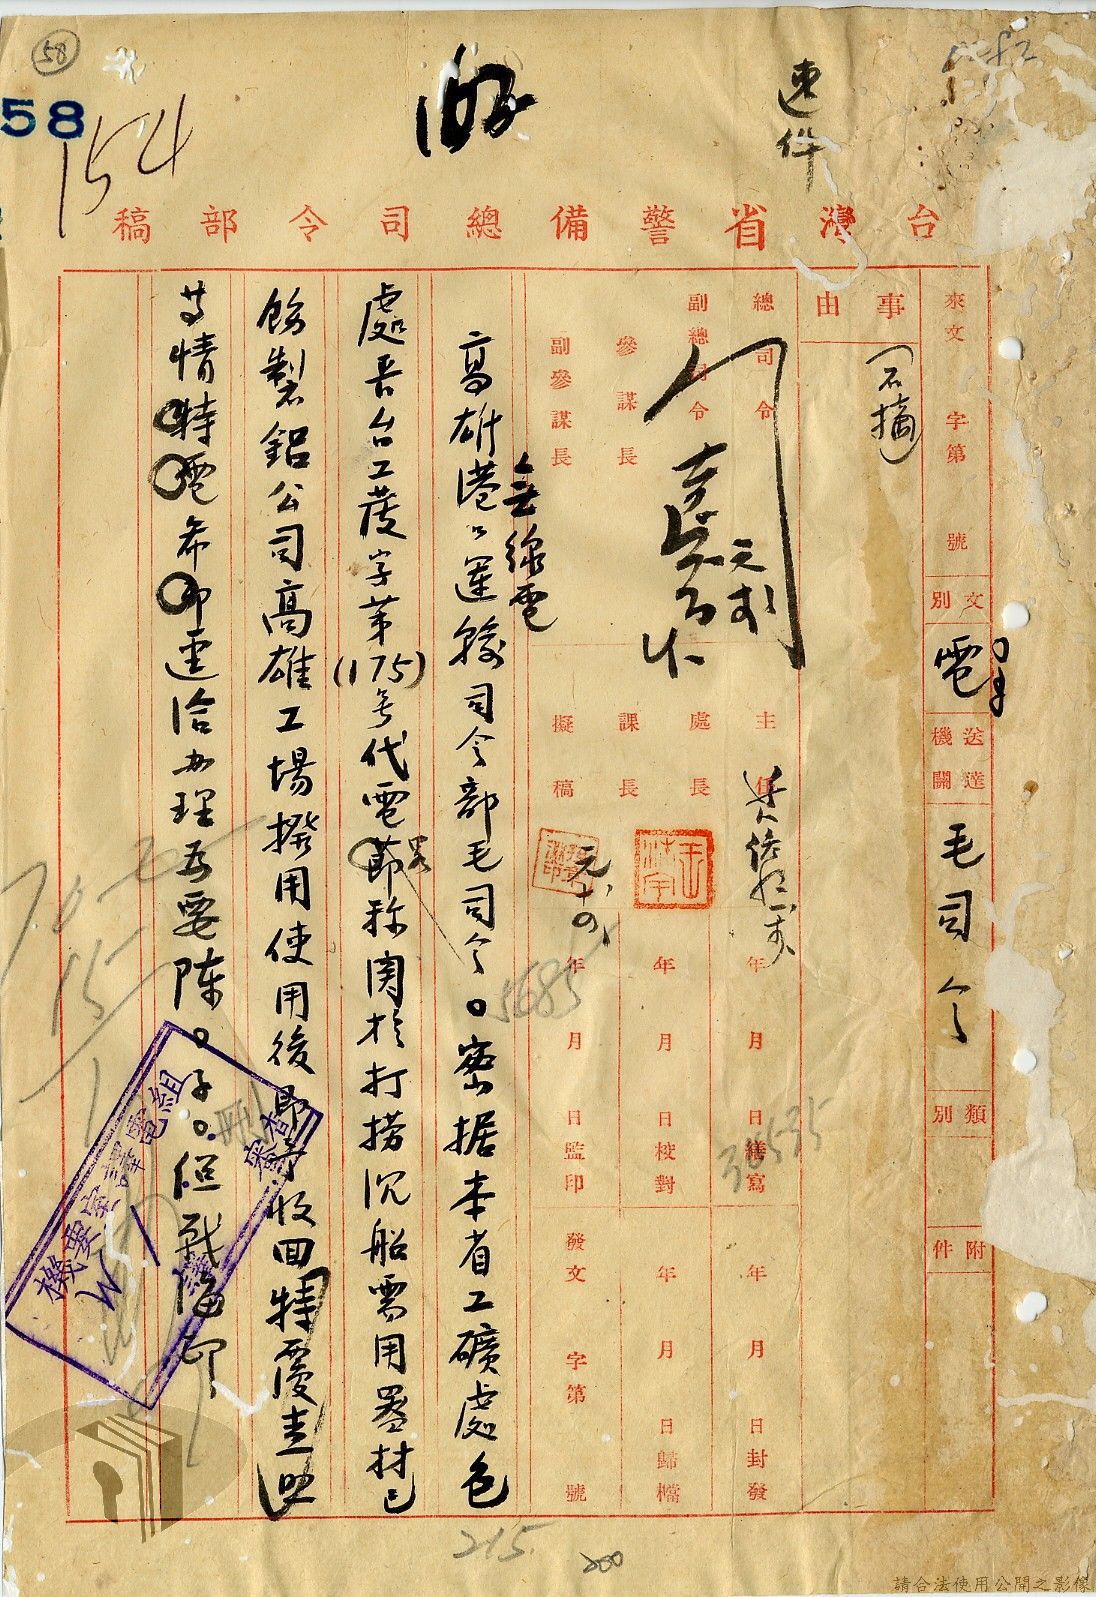 58
58
154
速件
台灣省警備總司令部稿
來文 字第 號
文別 電
送達機關 毛司令
類別
附件
事由
不摘
總司令
副總司令
參謀長
副參謀長
主任
處長
課長
擬稿
年 月 日繕寫
年 月 日校對
年 月 日監印
年 月 日封發
年 月 日歸檔
發文 字第 號
無線電
高雄港口運輸司令部毛司令。密据本省工礦處包
處長台工茂字第(175)号代電節畧称関於打撈沉船需用器材已
飭製鋁公司高雄工場撥用使用後即予收回特覆查照
等情特電希即逕洽办理為要陳。子。但戰海印
機要室譯電組
5685
30595
70
15
215
200
請合法使用公開之影像